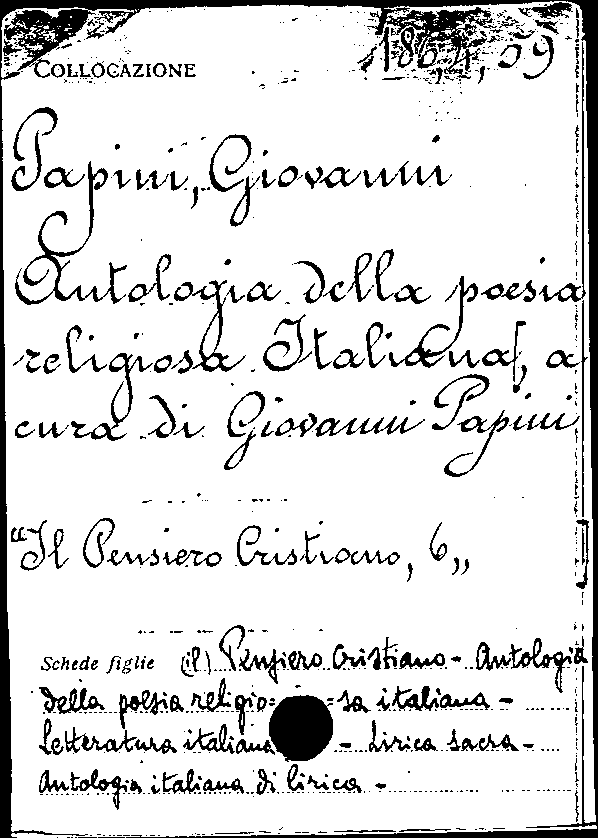 COLLOCAZIONE 180,4,59
Papini, Giovanni
Antologia della poesia
religiosa Italiana[, a
cura di Giovanni Papini
"Il Pensiero Cristiano, 6„
Schede figlie (il) Pensiero Cristiano - Antologia
della poesia religio= =sa italiana -
Letteratura italiana - Lirica sacra -
Antologia italiana di lirica -